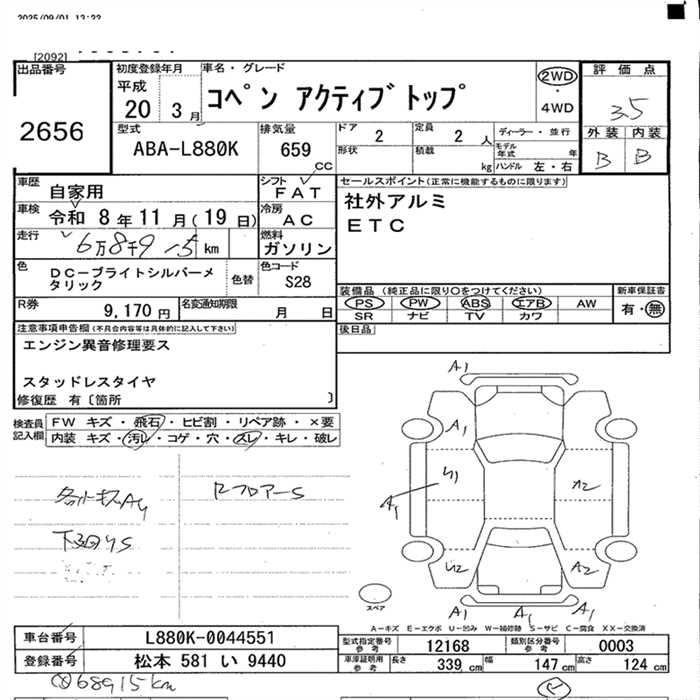 2025/09/01 13:22
[2092]
出品番号
2656
初度登録年月
平成
20 3月
車名・グレード
コペン アクティブトップ
2WD
・
4WD
評価点
3.5
外装 内装
B B
型式
ABA-L880K
排気量
659
CC
ドア 2
形状
定員 2 人
積載 kg
ディーラー・並行
モデル年式 年
ハンドル 左・右
車歴
自家用
シフト
FAT
車検
令和 8年 11月(19日)
冷房
AC
走行
6万8千9 15 km
燃料
ガソリン
色
DC-ブライトシルバーメタリック
色替
色コード
S28
R券
9,170円
名変通知期限
月 日
セールスポイント(正常に機能するものに限ります)
社外アルミ
ETC
装備品(純正品に限り○をつけてください)
PS PW ABS エアB AW
SR ナビ TV カワ
新車保証書
有・無
後日品
注意事項申告欄(不具合内容等は具体的に記入して下さい)
エンジン異音修理要ス
スタッドレスタイヤ
修復歴 有〔箇所 〕
検査員記入欄
FW キズ・飛石・ヒビ割・リペア跡・×要
内装 キズ・汚レ・コゲ・穴・スレ・キレ・破レ
RフロアーS
下回りS
A1
A1
A1
U1
A2
U2
A2
A1
A1
A1
スペア
A-キズ E-エクボ U-凹み W-補修跡 S-サビ C-腐食 XX-交換済
車台番号
L880K-0044551
登録番号
松本 581 い 9440
型式指定番号参考
12168
類別区分番号参考
0003
車庫証明用参考
長さ 339 cm
幅 147 cm
高さ 124 cm
68915km